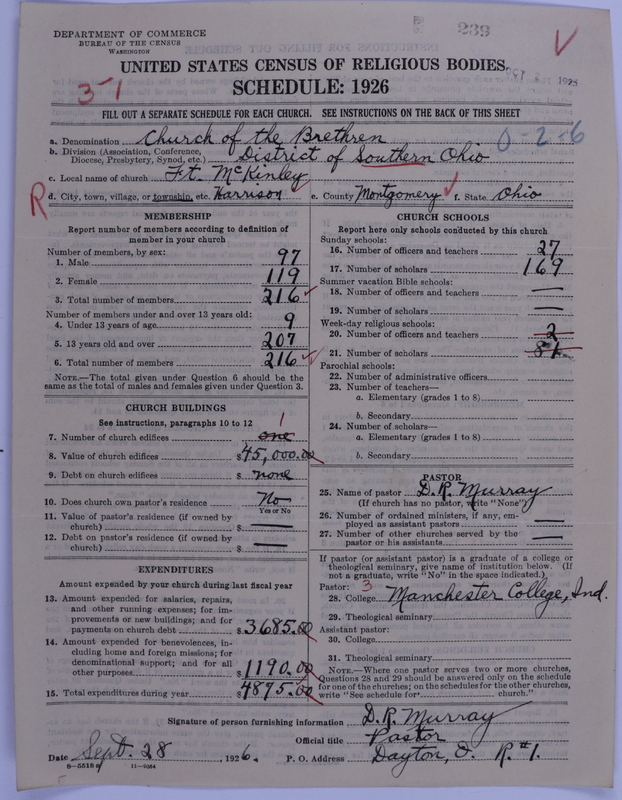 DEPARTMENT OF COMMERCE
BUREAU OF THE CENSUS
WASHINGTON
239
UNITED STATES CENSUS OF RELIGIOUS BODIES
SCHEDULE: 1926
3-1
FILL OUT A SEPARATE SCHEDULE FOR EACH CHURCH. SEE INSTRUCTIONS ON THE BACK OF THIS SHEET
a. Denomination Church of the Brethren
0-2-6
b. Division (Association, Conference, Diocese, Presbytery, Synod, etc.) District of Southern Ohio
c. Local name of church Ft. McKinley
R
d. City, town, village, or township, etc. Harrison e. County Montgomery f. State Ohio
MEMBERSHIP
Report number of members according to definition of
member in your church
Number of members, by sex:
1. Male 97
2. Female 119
3. Total number of members 216
Number of members under and over 13 years old:
4. Under 13 years of age 9
5. 13 years old and over 207
6. Total number of members 216
NOTE.—The total given under Question 6 should be the
same as the total of males and females given under Question 3.
CHURCH BUILDINGS
See instructions, paragraphs 10 to 12
1
7. Number of church edifices one
8. Value of church edifices $45,000.00
9. Debt on church edifices $ none
10. Does church own pastor's residence No
Yes or No
11. Value of pastor's residence (if owned by
church) $ —
12. Debt on pastor's residence (if owned by
church) $ —
EXPENDITURES
Amount expended by your church during last fiscal year
13. Amount expended for salaries, repairs,
and other running expenses; for im-
provements or new buildings; and for
payments on church debt $3685.00
14. Amount expended for benevolences, in-
cluding home and foreign missions; for
denominational support; and for all
other purposes $1190.00
15. Total expenditures during year $4875.00
CHURCH SCHOOLS
Report here only schools conducted by this church
Sunday schools:
16. Number of officers and teachers 27
17. Number of scholars 169
Summer vacation Bible schools:
18. Number of officers and teachers —
19. Number of scholars —
Week-day religious schools:
20. Number of officers and teachers 2
21. Number of scholars 81
Parochial schools:
22. Number of administrative officers
23. Number of teachers—
a. Elementary (grades 1 to 8)
b. Secondary
24. Number of scholars—
a. Elementary (grades 1 to 8)
b. Secondary
PASTOR
25. Name of pastor D. R. Murray
(If church has no pastor, write "None")
26. Number of ordained ministers, if any, em-
ployed as assistant pastors —
27. Number of other churches served by the
pastor or his assistants —
If pastor (or assistant pastor) is a graduate of a college or
theological seminary, give name of institution below. (If
not a graduate, write "No" in the space indicated.)
Pastor: 3
28. College Manchester College, Ind.
29. Theological seminary
Assistant pastor:
30. College
31. Theological seminary
NOTE.—Where one pastor serves two or more churches,
Questions 28 and 29 should be answered only on the schedule
for one of the churches; on the schedules for the other churches,
write "See schedule for church."
Signature of person furnishing information D. R. Murray
Official title Pastor
Date Sept. 28, 1926. P. O. Address Dayton, O. R. #1.
8—5518 a 11—9064